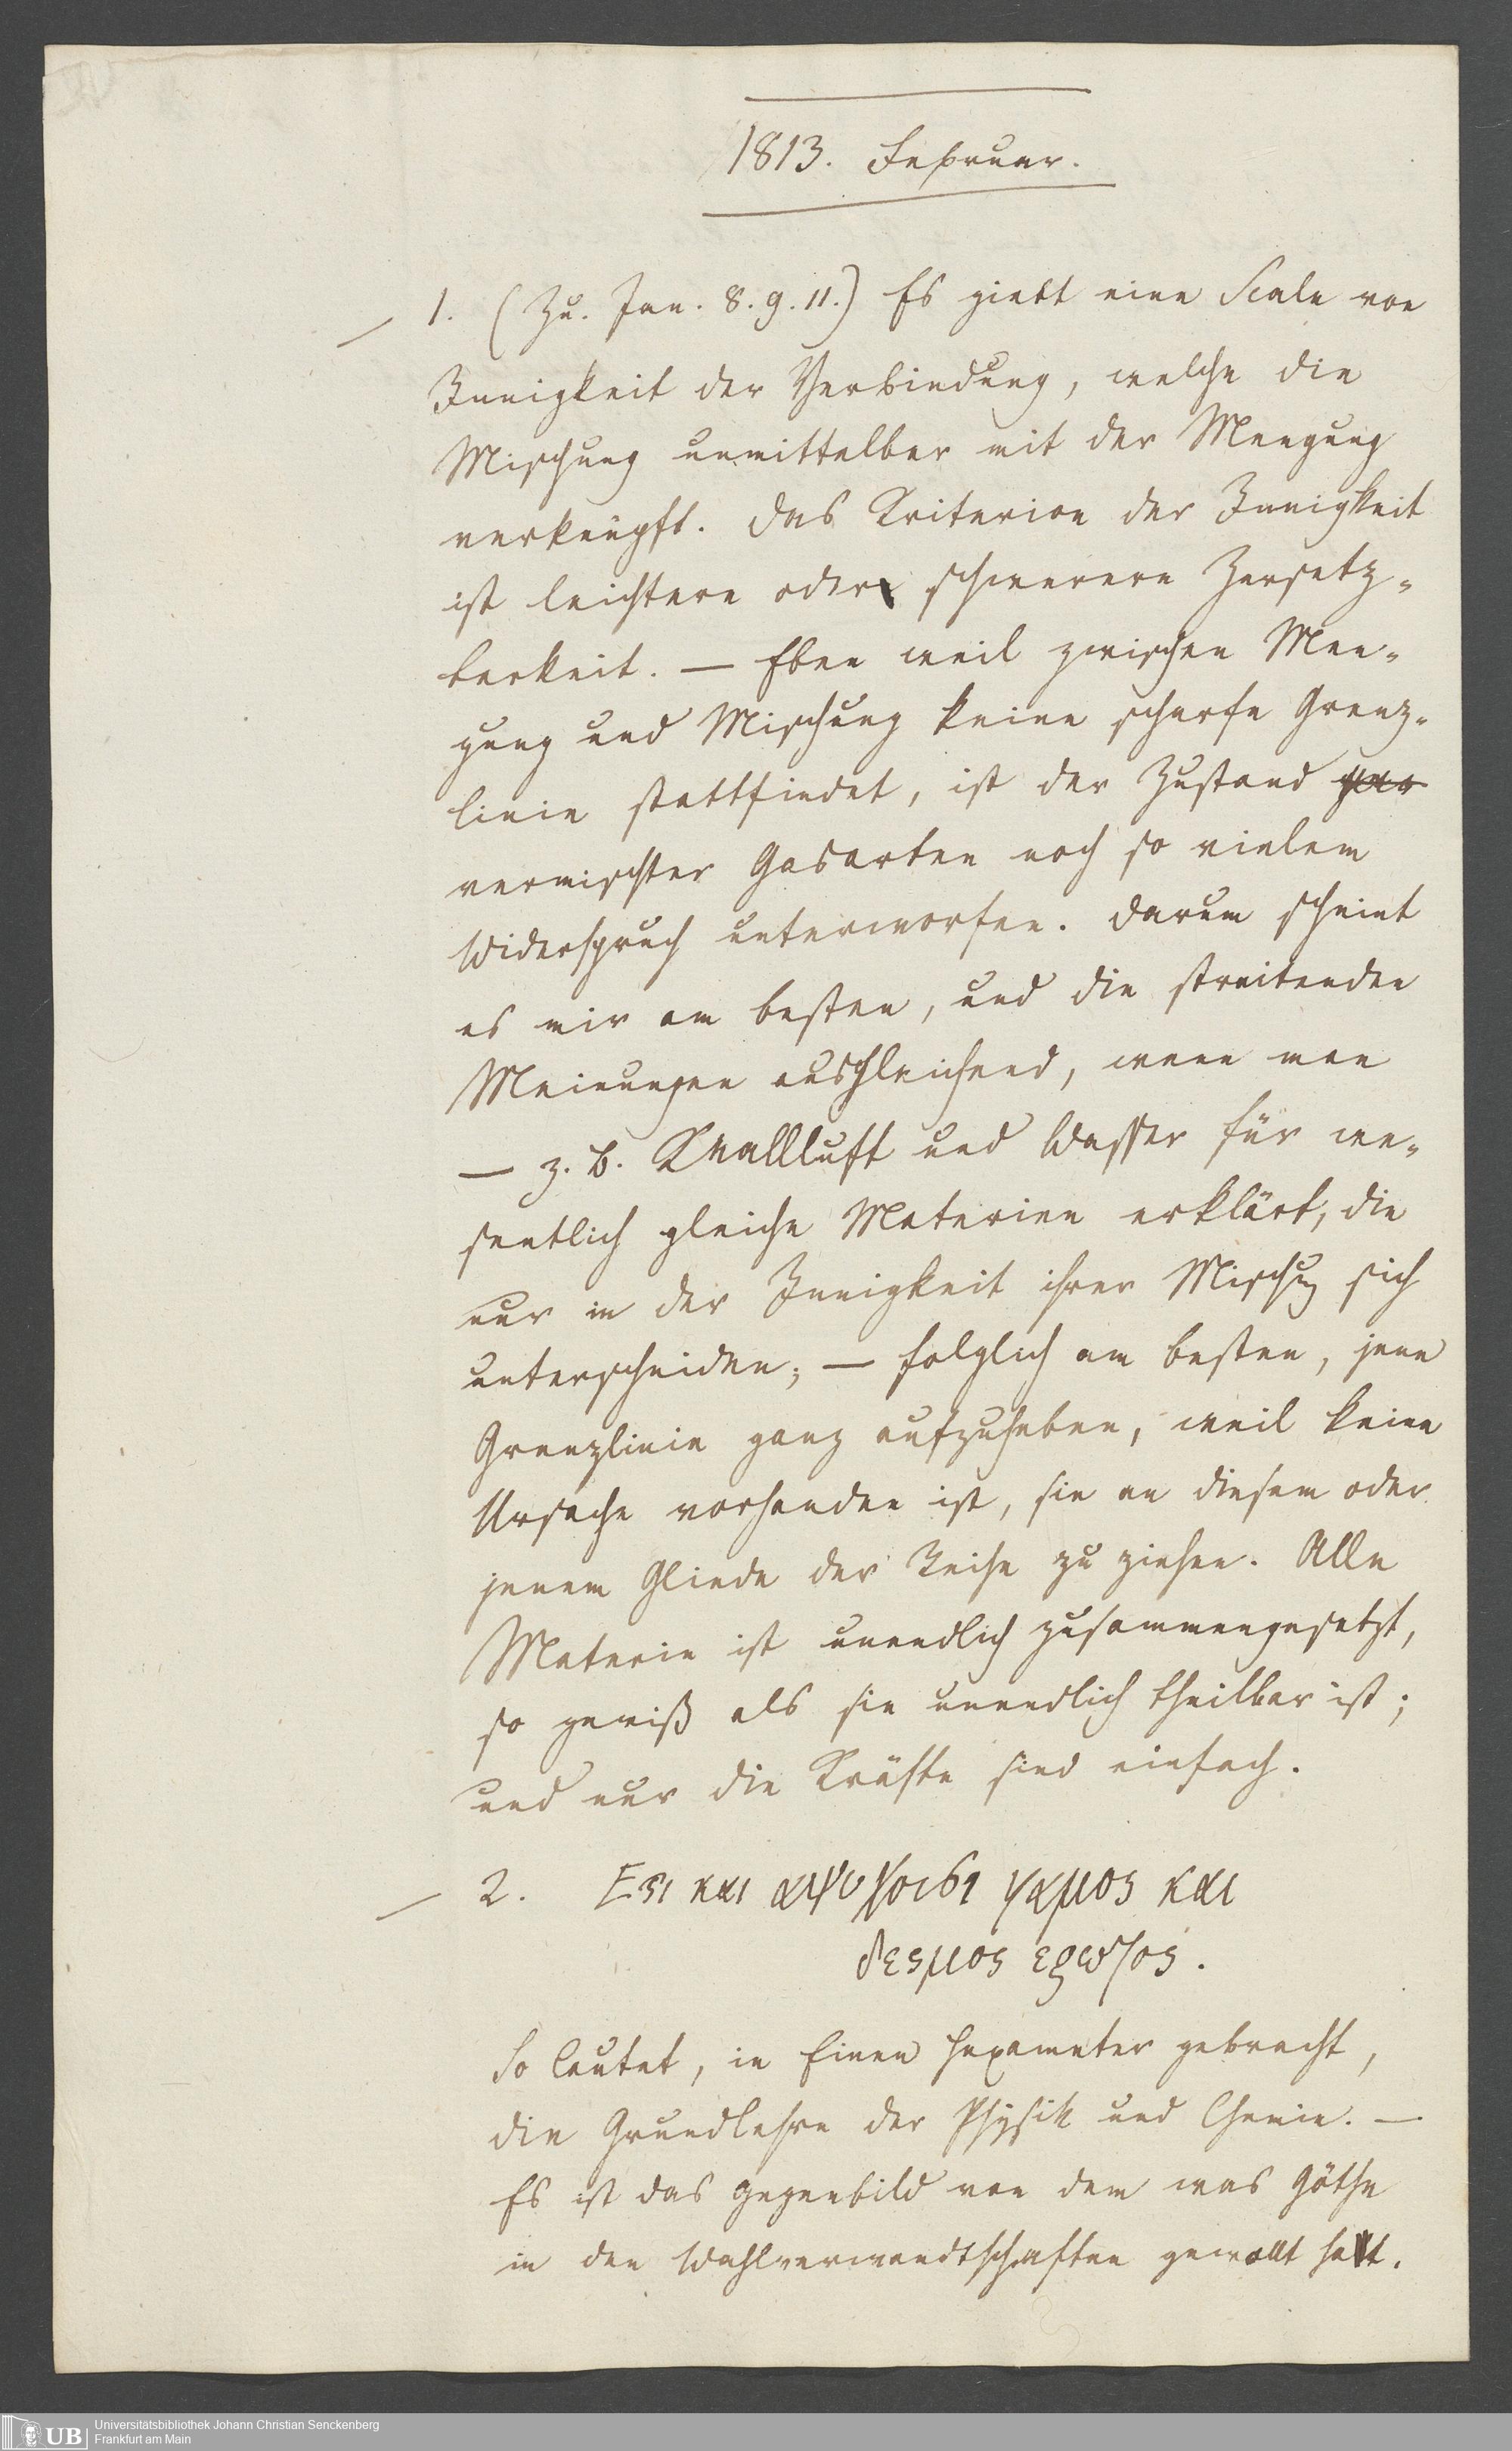 1813. Februar.
1. (Zu. Jan. 8. 9. 11.) Es giebt eine Scale von
Innigkeit der Verbindung, welche die
Mischung unmittelbar mit der Mengung
verknüpft. Das Kriterion der Innigkeit
ist leichtere oder schwerere Zersetz-
barkeit. — Eben weil zwischen Men-
gung und Mischung keine scharfe Grenz-
linie stattfindet, ist der Zustand
vermischter Gasarten noch so vielem
Widerspruch unterworfen. Darum scheint
es mir am besten, und die streitenden
Meinungen ausgleichend, wenn man
— z. B. Knallluft und Wasser für we-
sentlich gleiche Materien erklärt, die
nur in der Innigkeit ihrer Mischung sich
unterscheiden; — folglich am besten, jene
Grenzlinie ganz aufzuheben, weil keine
Ursache vorhanden ist, sie an diesem oder
jenem Gliede der Reihe zu ziehen. Alle
Materie ist unendlich zusammengesetzt,
so gewiß als sie unendlich theilbar ist;
und nur die Kräfte sind einfach.
2. Εϛι και αψυχοισι γαμος και
δεσμος ερωτος.
So lautet, in Einen Hexameter gebracht,
die Grundlehre der Physik und Chemie. —
Es ist das Gegenbild von dem was Göthe
in den Wahlverwandtschaften gewollt hat.
UB
Universitätsbibliothek Johann Christian Senckenberg
Frankfurt am Main